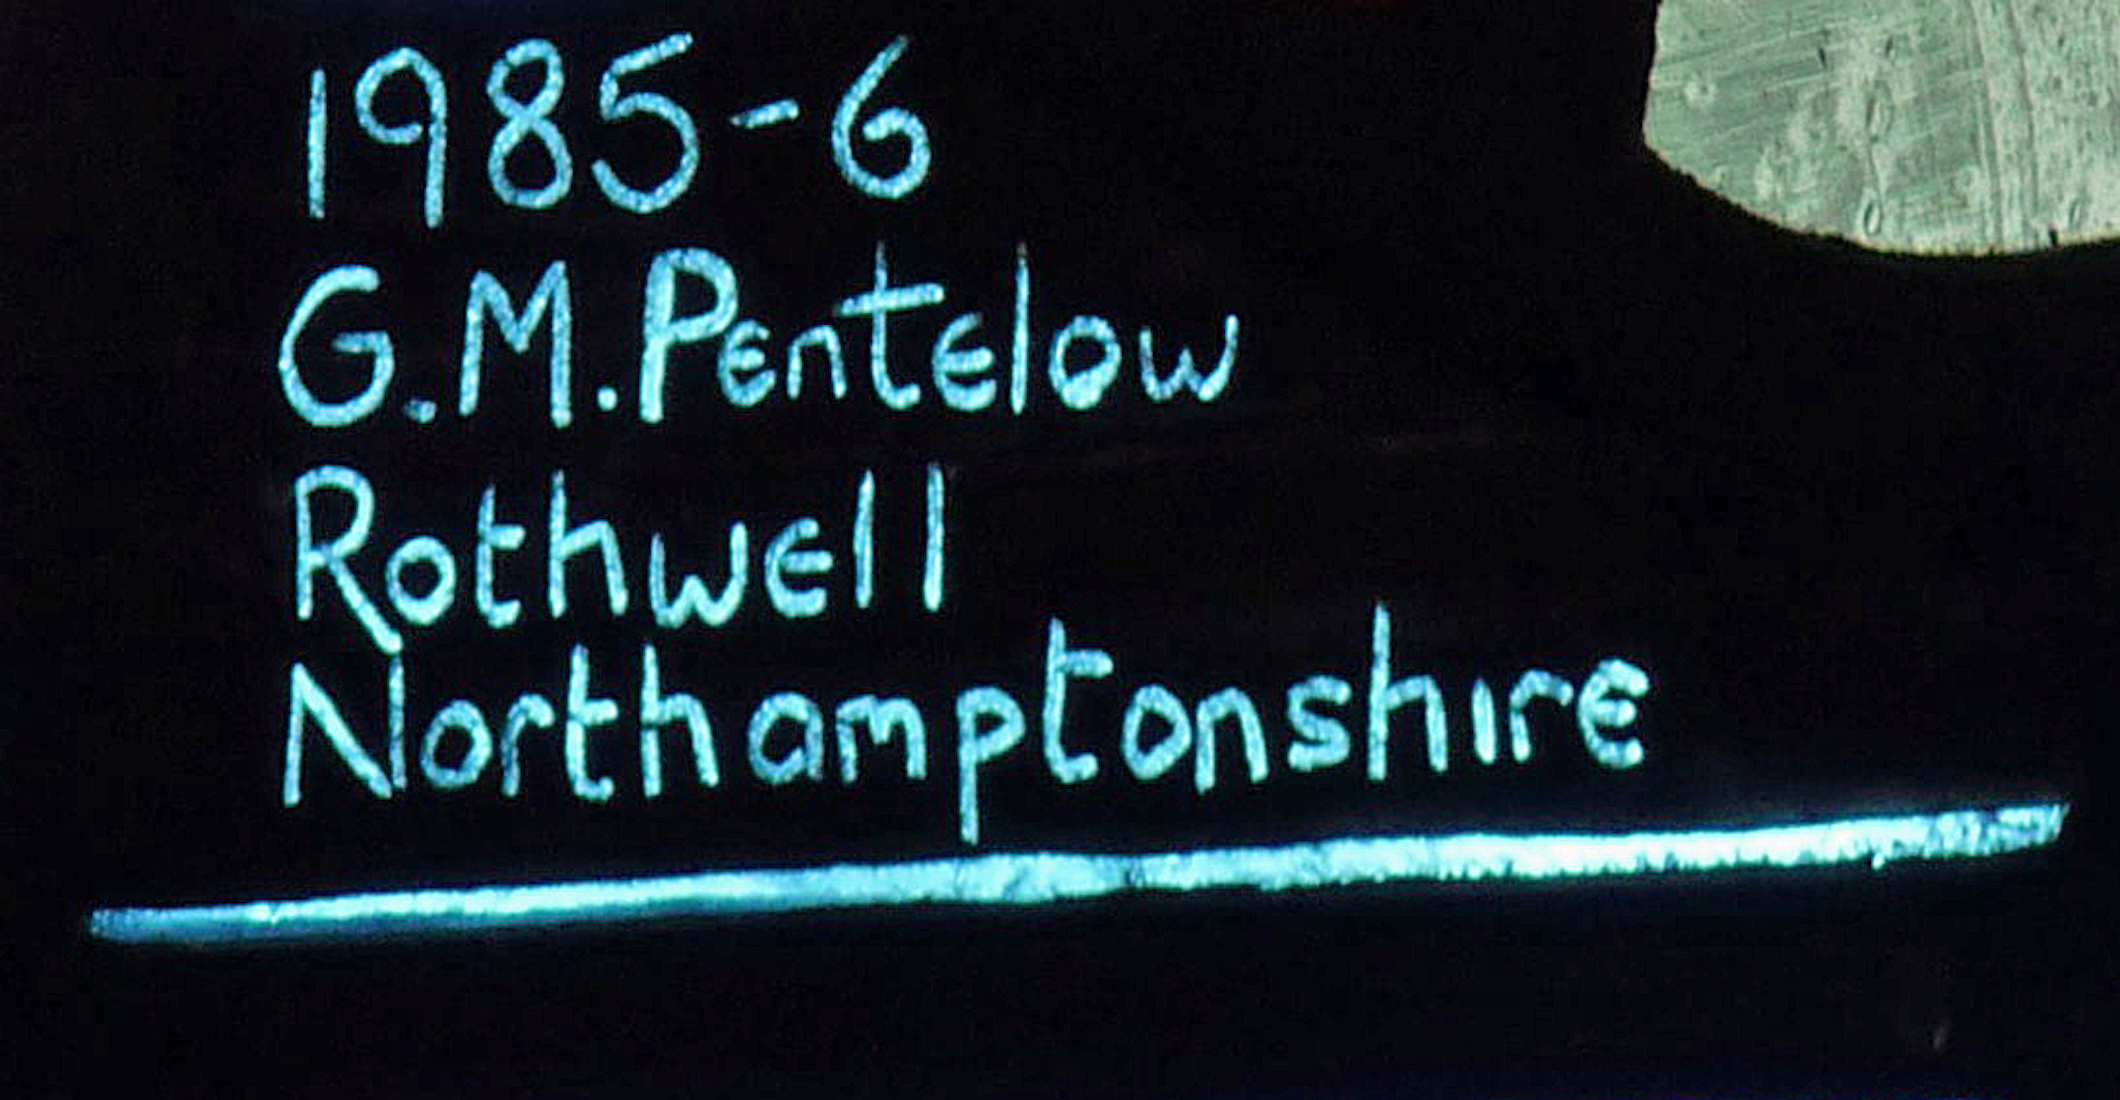 1985-6
G.M.Pentelow
Rothwell
Northamptonshire